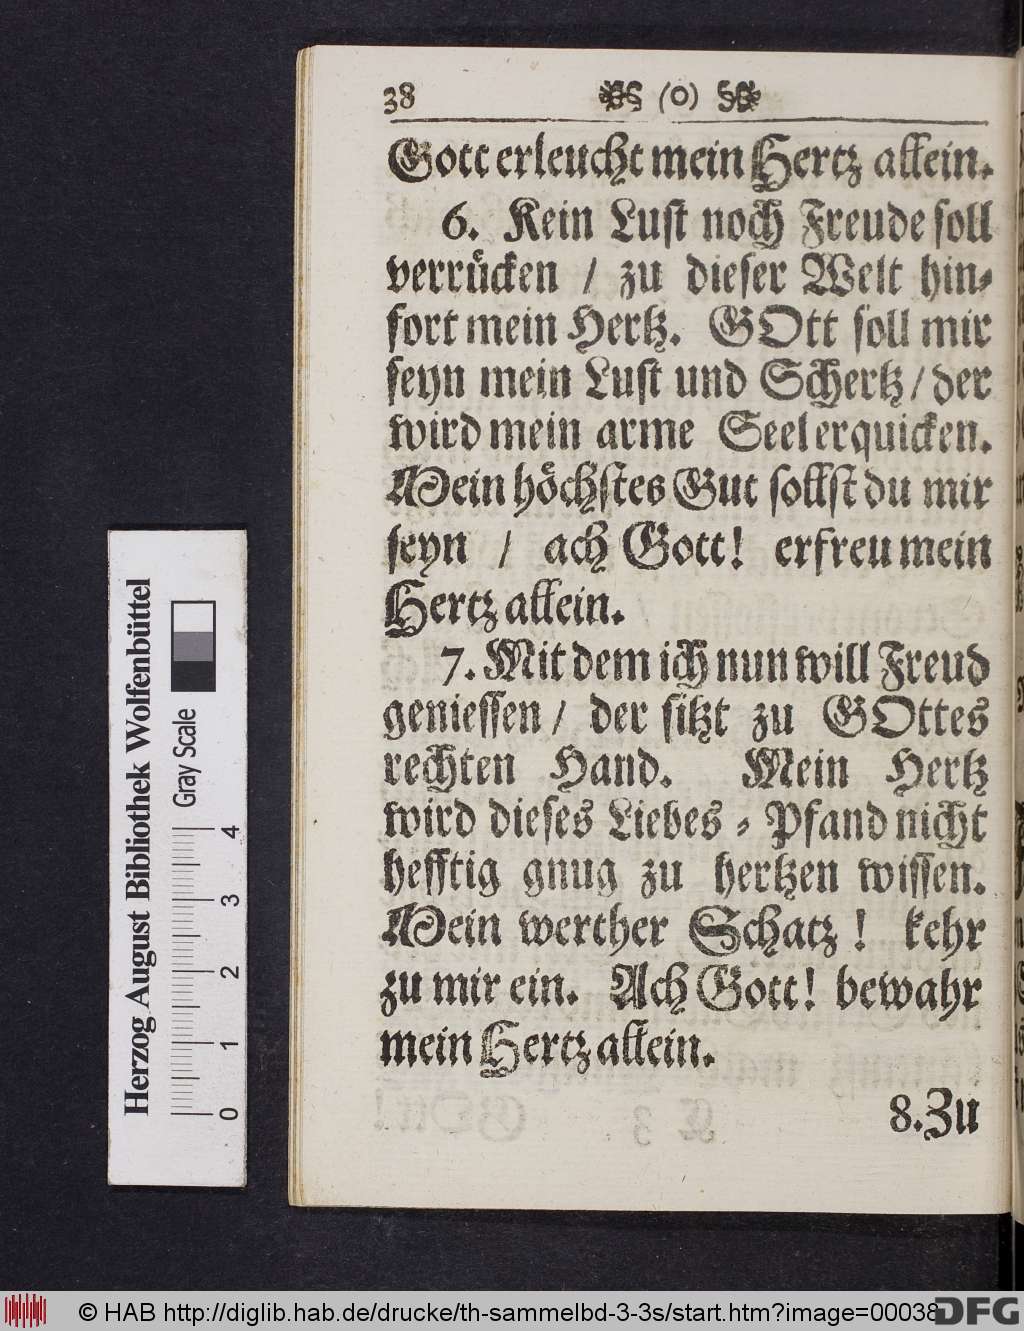 38 (o)
Gott erleucht mein Hertz allein.
6. Kein Lust noch Freude soll
verrücken / zu dieser Welt hin-
fort mein Hertz. GOtt soll mir
seyn mein Lust und Schertz / der
wird mein arme Seel erquicken.
Mein höchstes Gut sollst du mir
seyn / ach Gott! erfreu mein
Hertz allein.
7. Mit dem ich nun will Freud
geniessen / der sitzt zu GOttes
rechten Hand. Mein Hertz
wird dieses Liebes-Pfand nicht
hefftig gnug zu hertzen wissen.
Mein werther Schatz! kehr
zu mir ein. Ach Gott! bewahr
mein Hertz allein.
8. Zu
Herzog August Bibliothek Wolfenbüttel
Gray Scale
0 1 2 3 4
© HAB http://diglib.hab.de/drucke/th-sammelbd-3-3s/start.htm?image=00038
DFG